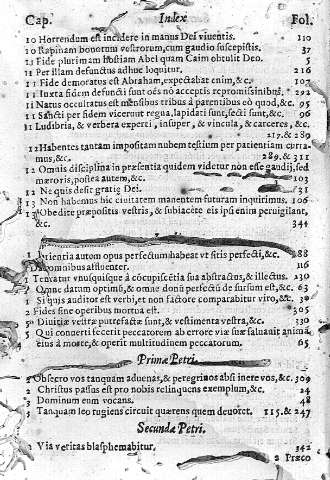 Cap. Index Fol.
10 Horrendum est incidere in manus Dei viuentis. 110
10 Rapinam bonorum vestrorum, cum gaudio suscepistis. 37
11 Fide plurimam Hostiam Abel quam Caim obtulit Deo. 5
11 Per illam defunctus adhuc loquitur. 216
11 Fide demoratus est Abraham, expectabat enim, &c. 103
11 Iuxta fidem defuncti sunt oẽs nõ acceptis repromissinibus. 292
11 Natus occultatus est mensibus tribus à parentibus eò quod, &c. 95
11 Sancti per fidem vicerunt regna, lapidati sunt, secti sunt, &c. 96
11 Ludibria, & verbera experti, insuper, & vincula, & carceres, &c.
219. & 289
12 Habentes tantam impositam nubem testium per patientiam curra-
mus, &c. 289. & 311
12 Omnis disciplina in præsentia quidem videtur non esse gaudij, sed
mæroris, postea autem, &c. 103
Ne quis desit gratię Dei. 31
13 Non habemus hic ciuitatem manentem futuram inquirimus. 106
13 Obedite præpositis vestris, & subiacete eis ipsi enim peruigilant,
&c. 344
1 Patientia autom opus perfectum habeat vt sitis perfecti, &c. 88
Dat omnibus affluenter. 116
1 Tentatur vnusquisque à cõcupiscẽtia sua abstractus, & illectus. 230
Omne datum optimũ, & omne donũ perfectũ de sursum est, &c. 63
Si quis auditor est verbi, et non factore comparabitur viro, &c. 30
2 Fides sine operibus mortua est. 305
5 Diuitiæ vestræ putrefactæ sunt, & vestimenta vestra, &c. 330
5 Qui conuerti fecerit peccatorem ab errore viæ suæ saluauit anima
eius à morte, & operit multitudinem peccatorum. 65
Primæ Petri.
Obsecro vos tanquam aduenas, & peregrinos abstinere vos, &c. 309
2 Christus passus est pro nobis relinquens exemplum, &c. 24
3 Dominum eum vocans. 48
Tanquam leo rugiens circuit quærens quem deuoret. 115. & 247
Secundæ Petri.
2 Via veritas blasphemabitur. 342
2 Præco